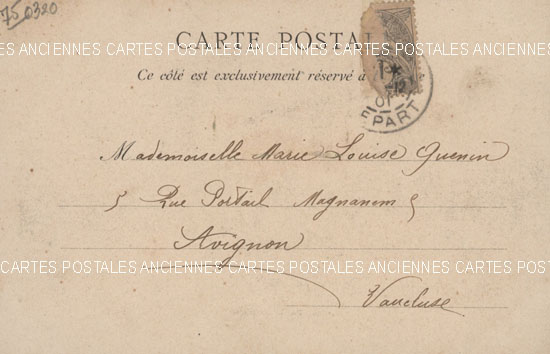 750320
CARTE POSTAL
CARTES POSTALES ANCIENNES CARTES POSTALES ANCIENNES CARTES POSTALES ANCIENNES
Ce côté est exclusivement réservé à
1*
-12
01
PART
Mademoiselle Marie Louise Guenin
5 Rue Portail Magnanem 5
Avignon
CARTES POSTALES ANCIENNES CARTES POSTALES ANCIENNES CARTES POSTALES ANCIENNES
Vaucluse